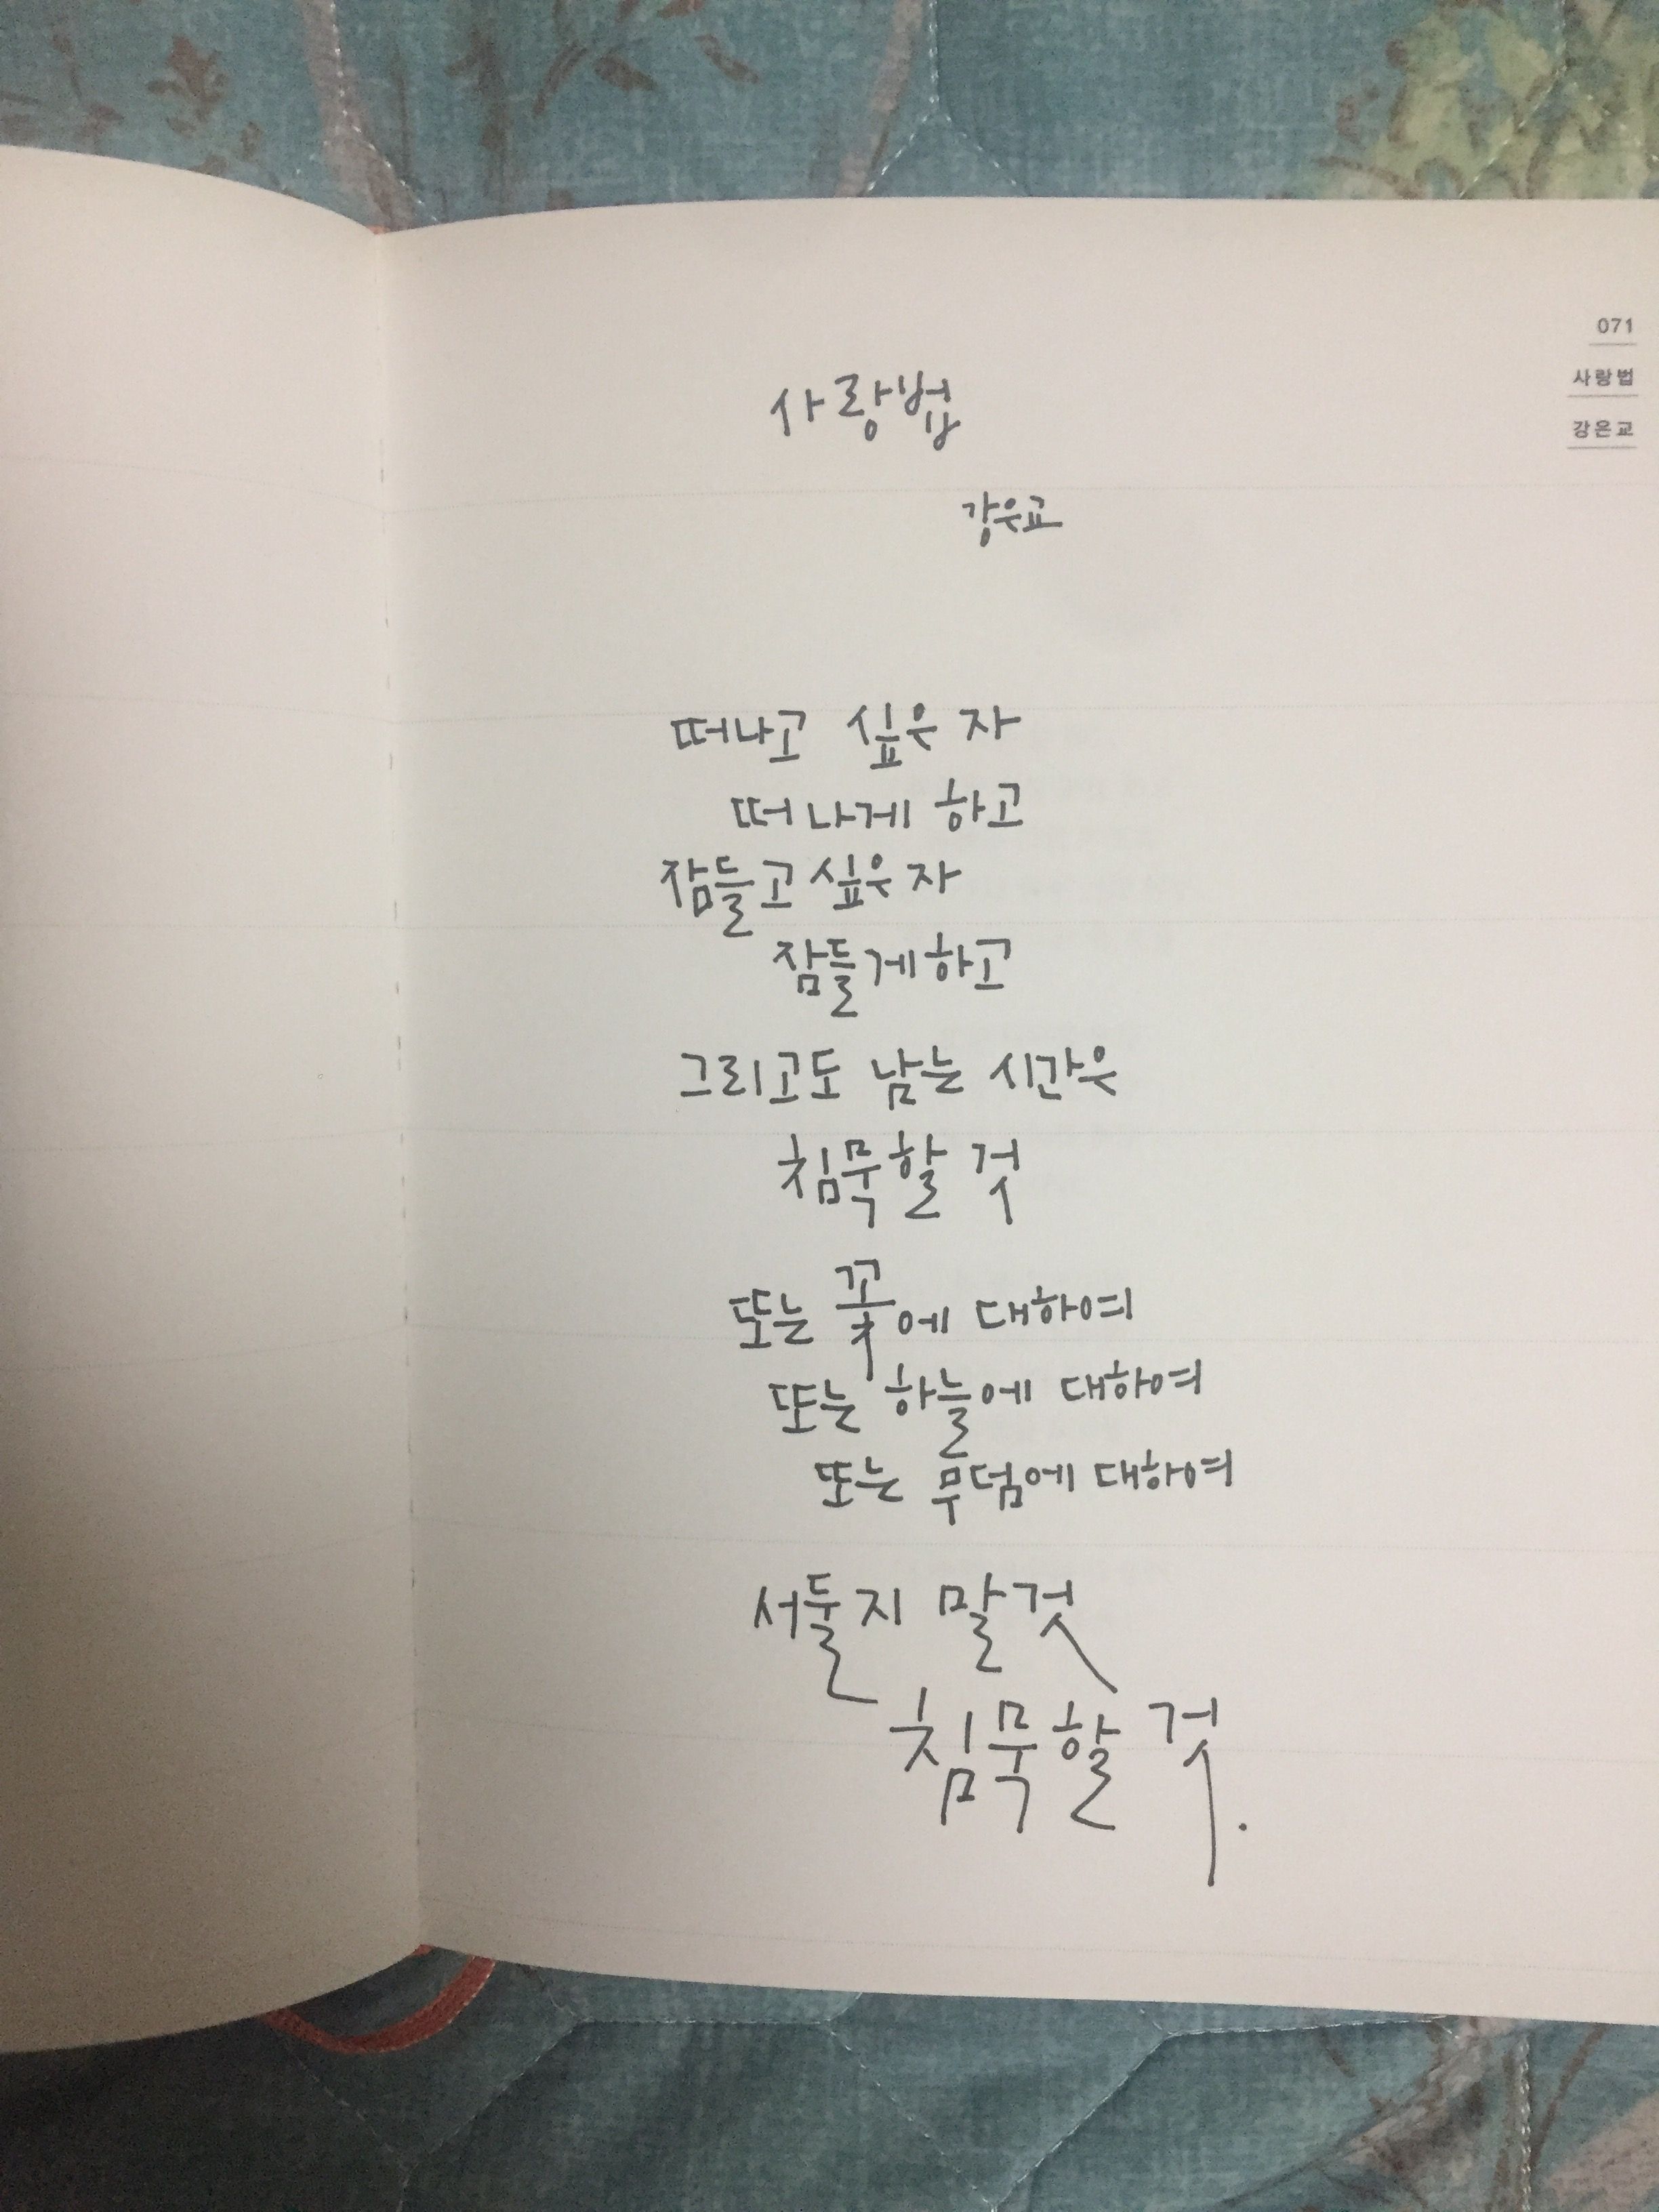 071
사랑법
강은교
사랑법
강은교
떠나고 싶은 자
떠나게 하고
잠들고 싶은 자
잠들게 하고
그리고도 남는 시간은
침묵할 것
또는 꽃에 대하여
또는 하늘에 대하여
또는 무덤에 대하여
서둘지 말 것
침묵할 것.